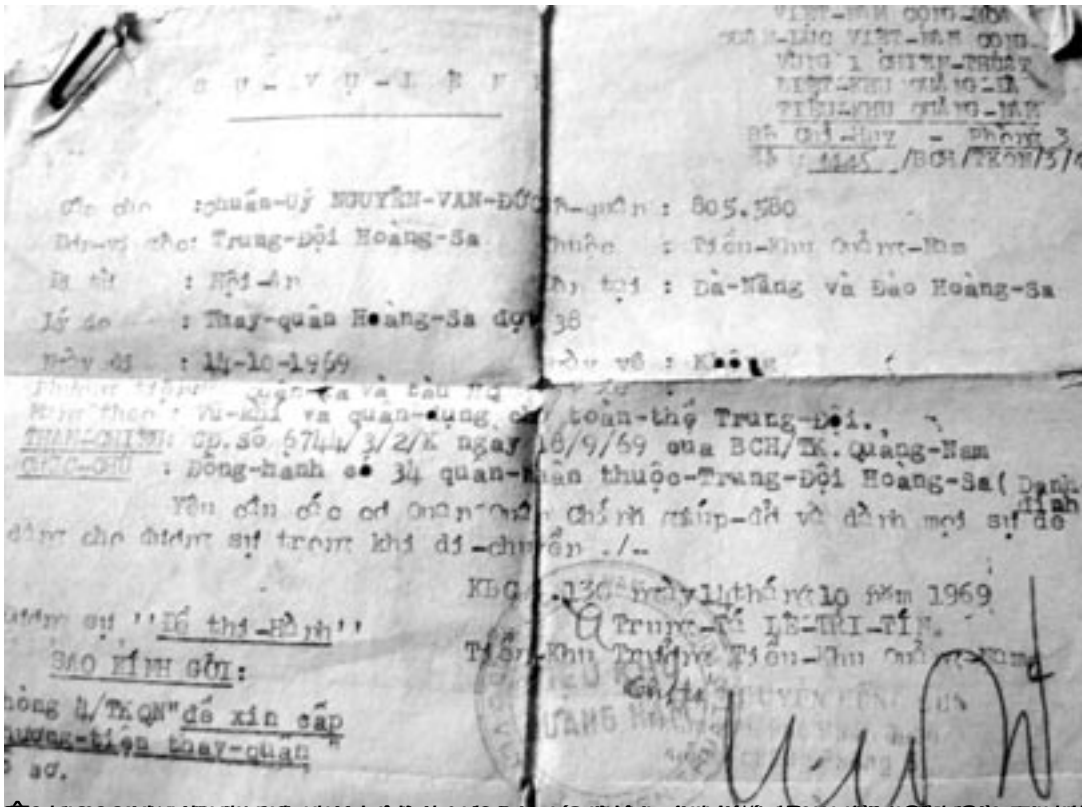 VIỆT-NAM CỘNG-HÒA
QUÂN-LỰC VIỆT-NAM CỘNG
VÙNG 1 CHIẾN-THUẬT
BIỆT-KHU QUẢNG-ĐÀ
TIỂU-KHU QUẢNG-NAM
Bộ Chỉ-Huy - Phòng 3
/BCH/TKQN/3/
SỰ-VỤ-LỆNH
Cấp cho :chuẩn-Uý NGUYỄN-VAN-ĐỨC
quân : 805.580
Đơn-vị gốc: Trung-Đội Hoàng-Sa
thuộc : Tiểu-Khu Quảng-Nam
Đi từ : Hội-An
tại : Đà-Nẵng và Đảo Hoàng-Sa
Lý do : Thay-quân Hoàng-Sa đợt 38
Ngày đi : 14-10-1969
về : Không
quân-xa và tàu HQ
Mang theo : Vũ-khí và quân-dụng cho toàn-thể Trung-Đội.
THAM-CHIẾU: Cp.số 6744/3/2/K ngày 18/9/69 của BCH/TK.Quảng-Nam
GHÚC-CHÚ : Đồng-hành có 34 quân-nhân thuộc-Trung-Đội Hoàng-Sa( Danh
đính
Yêu cần các cơ Quan Quân Chính giúp-đở và dành mọi sự dể
dàng cho đương sự trong khi di-chuyển ./-
KBC 4.130 ngày 14 tháng 10 năm 1969
Trung-Tá LÊ-TRI-TÍN.
Tiểu-Khu Trưởng Tiểu-Khu Quảng-Nam
đương sự ''Để thi-Hành''
SAO KÍNH GỞI:
hòng 4/TKQN"để xin cấp
hương-tiện thay-quân "
ồ sơ.